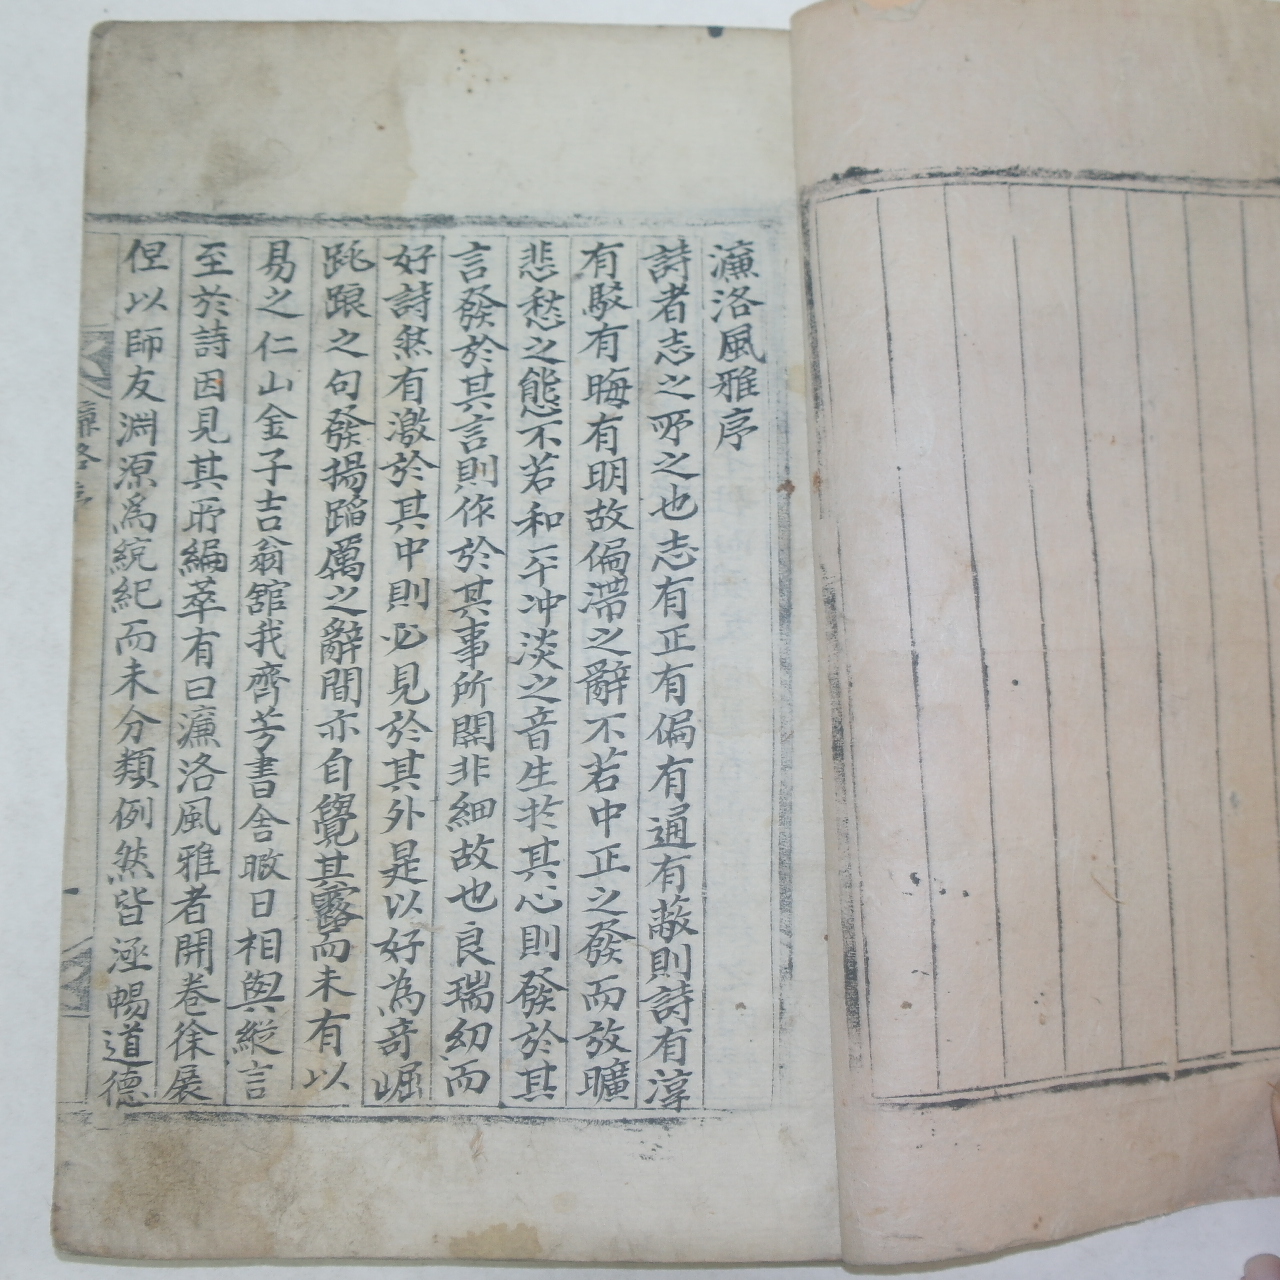 濂洛風雅序
詩者志之所之也志有正有偏有通有蔽則詩有淳
有駁有晦有明故偏滯之辭不若中正之發而放曠
悲愁之態不若和平冲淡之音生扵其心則發於其
言發於其言則作於其事所關非細故也良瑞幼而
好詩然有激於其中則必見於其外是以好為奇崛
跳踉之句發揚蹈厲之辭間亦自覺其露而未有以
易之仁山金子吉翁舘我齊芳書舍暇日相與縱言
至於詩因見其所編萃有曰濂洛風雅者開卷徐展
但以師友淵源為統紀而未分類例然皆涵暢道德
濂洛序